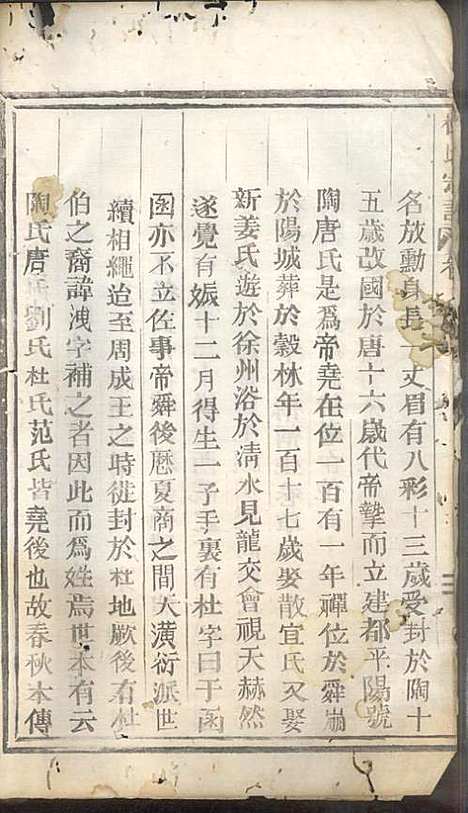 名放勳身長丈眉有八彩十三歲受封於陶十
五歲改國於唐十六歲代帝摯而立建都平陽號
陶唐氏是爲帝堯在位一百有一年禪位於舜崩
於陽城葬於穀林年一百十七歲娶散宜氏又娶
新姜氏遊於徐州浴於淸水見龍交會視天赫然
遂覺有娠十二月得生一子手裏有杜字曰于函
函亦不立佐事帝舜後歷夏商之間天潢衍派世
續相繩迨至周成王之時徙封於杜地厥後有杜
伯之裔諱洩字補之者因此而爲姓焉世本有云
陶氏唐氏劉氏杜氏范氏皆堯後也故春秋本傳